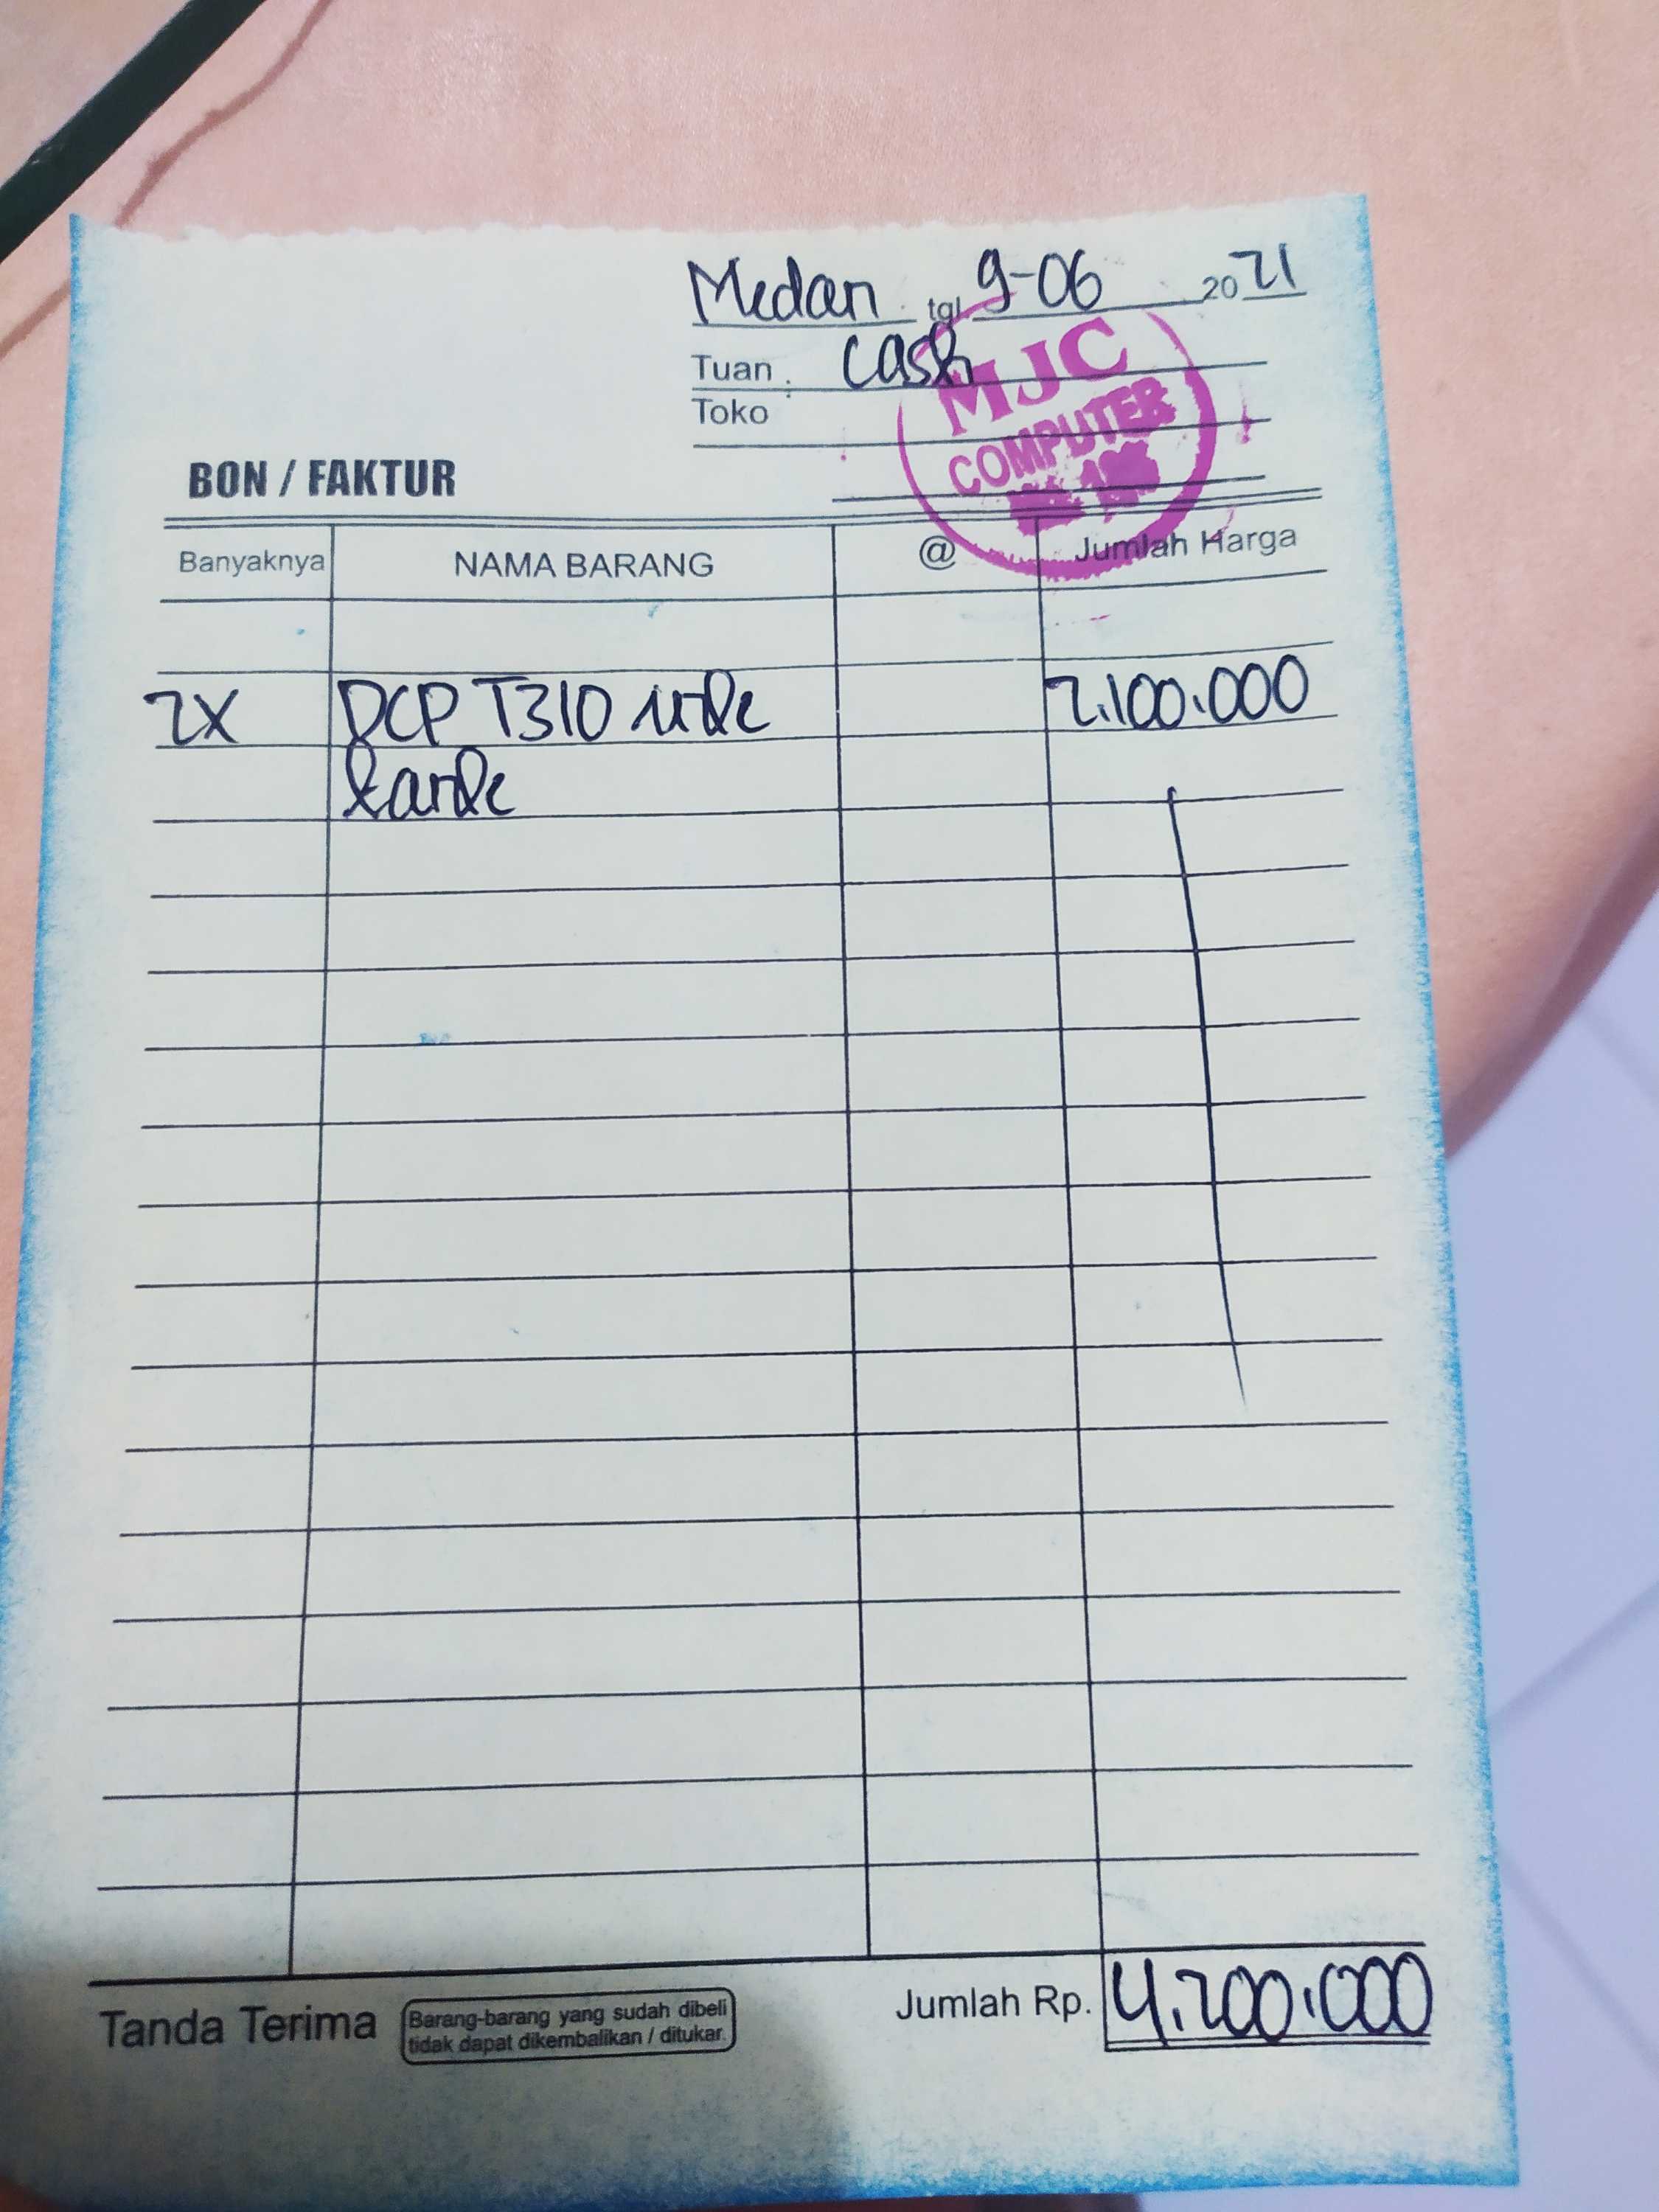 Medan tgl 9-06 2021
Tuan : Cash
Toko
MJC
COMPUTER
BON / FAKTUR
Banyaknya NAMA BARANG @ Jumlah Harga
2X DCP T310 2.100.000
4.200.000
Tanda Terima Barang-barang yang sudah dibeli Jumlah Rp.
tidak dapat dikembalikan / ditukar.